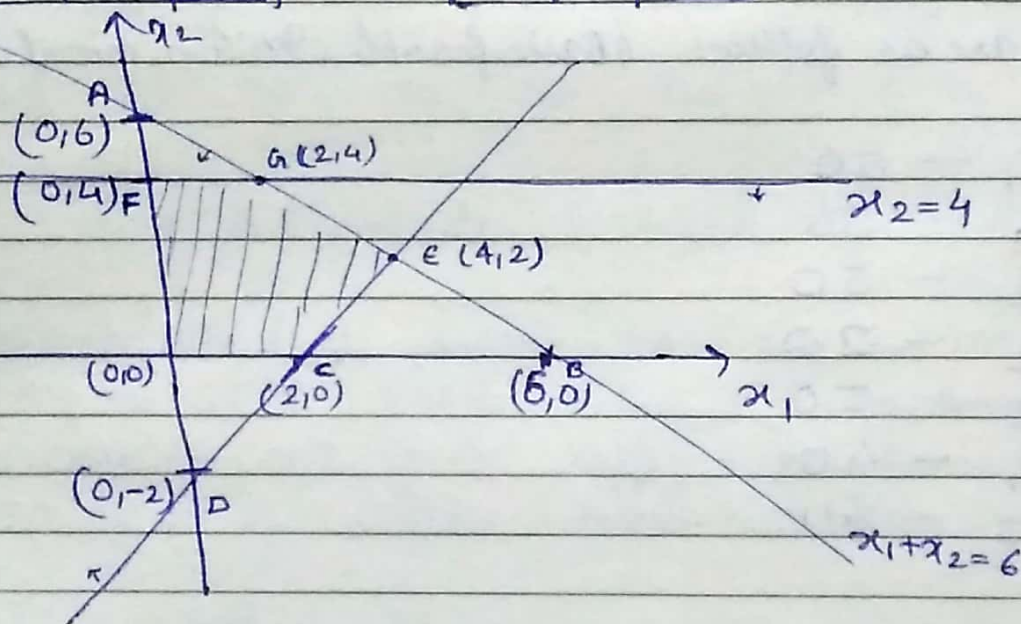 x₂
A
(0,6)
G(2,4)
(0,4) F
x₂=4
E (4,2)
(0,0)
C
(2,0)
B
(6,0)
x₁
(0,-2) D
x₁+x₂=6